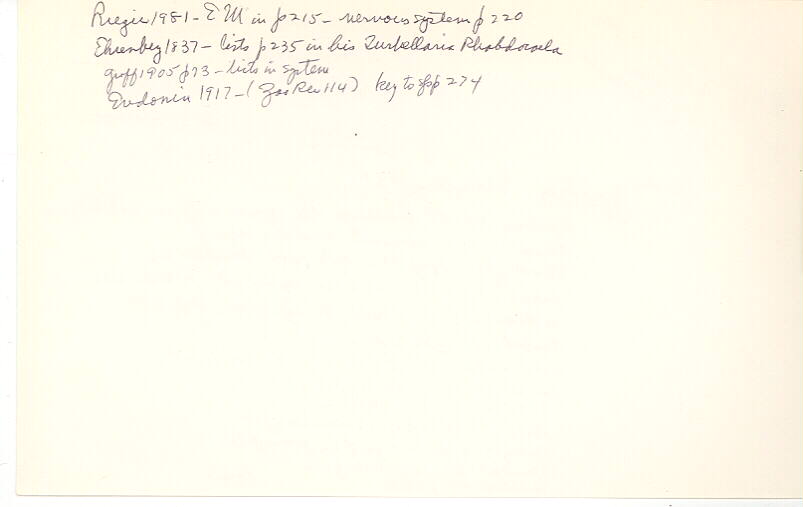 Rieger 1981 - EM in p 215 - nervous system p 220
Ehrenberg 1837 - lists p 235 in his Turbellaria Rhabdocoela
Graff 1905 p 73 - lists in system
1917 - (Zoo Rec 114) key to spp 274